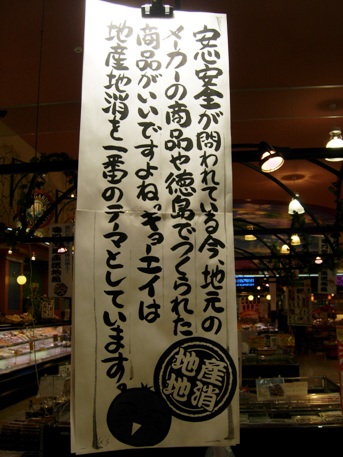 安心安全が問われている今、地元の
メーカーの商品や徳島でつくられた
商品がいいですよね。キョーエイは
地産地消を一番のテーマとしています。
地産
地消